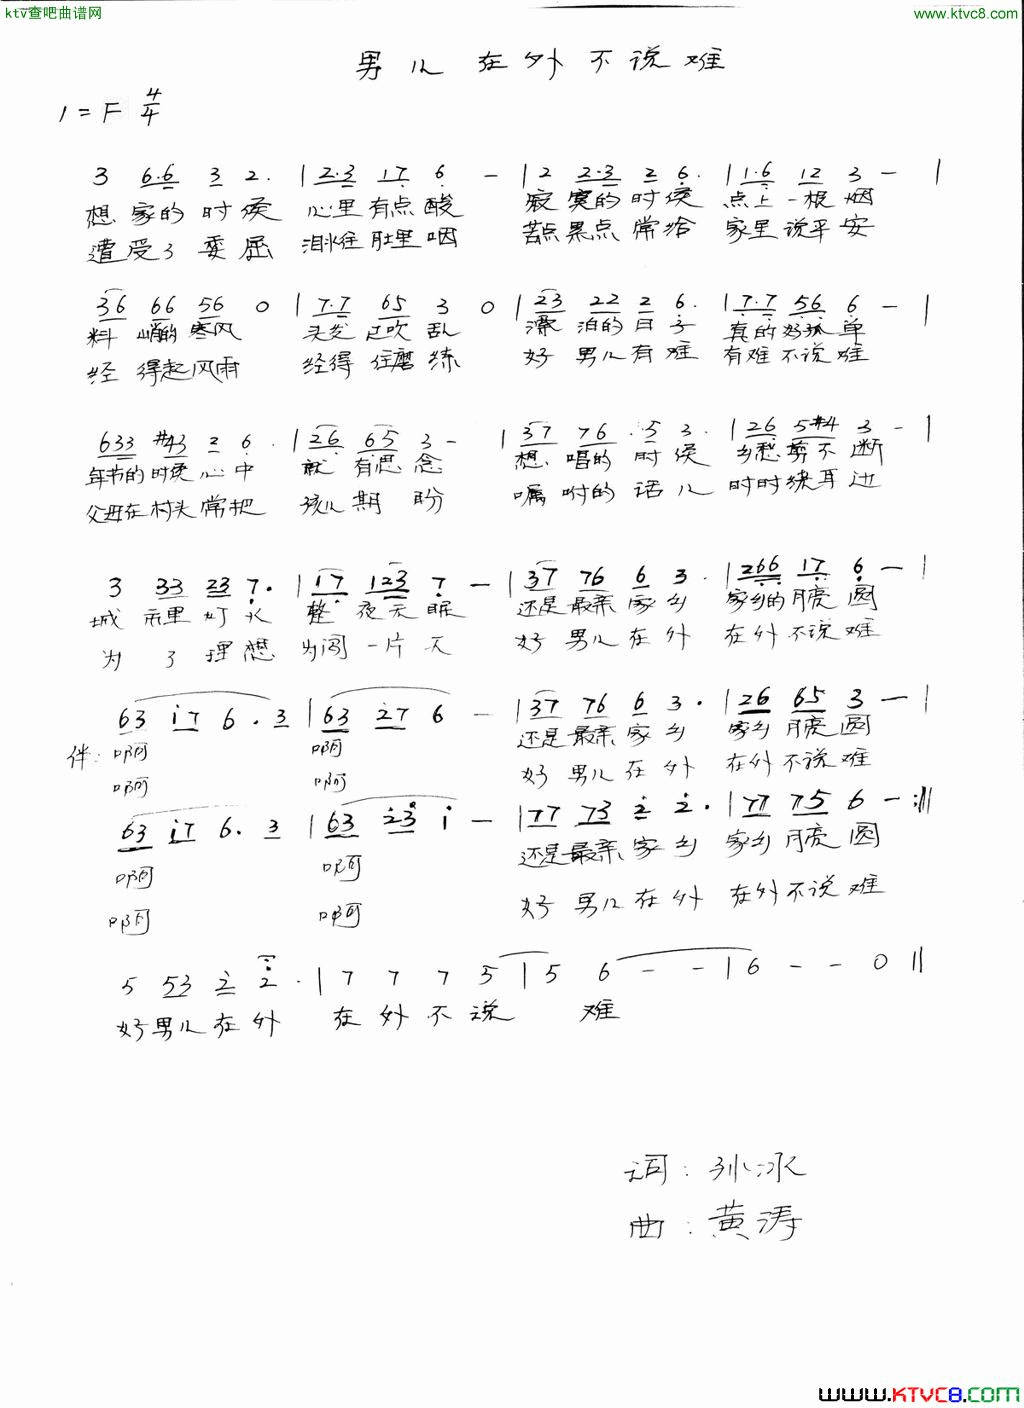 ktv查吧曲谱网
www.ktvc8.com
男儿在外不说难
1=F 4/4
3 6·6 3 2· | 2·3 17 6 - | 2 2·3 2 6· | 1·6 12 3 - |
想家的时候 心里有点酸 寂寞的时候 点上一根烟
遭受了委屈 泪水往肚里咽 苦点累点常给 家里说平安
36 66 56 0 | 7·7 65 3 0 | 23 22 2 6· | 7·7 56 6 - |
料峭的寒风 头发已吹乱 漂泊的日子 真的好孤单
经得起风雨 经得住磨练 好男儿有难 有难不说难
633 #43 2 6· | 26 65 3 - | 37 76 ·5 3· | 26 5#4 3 - |
年节的时候心中 就有思念 想唱的时候 乡愁剪不断
父母在村头常把 孩儿期盼 嘱咐的话儿 时时绕耳边
3 33 23 7· | 17 123 7 - | 37 76 6 3· | 266 17 6 - |
城市里灯火 整夜无眠 还是最亲家乡 家乡的月亮圆
为了理想 为闯一片天 好男儿在外 在外不说难
63 i7 6· 3 | 63 27 6 - | 37 76 6 3· | 26 65 3 - |
伴: 啊 啊 还是最亲家乡 家乡月亮圆
啊 啊 好男儿在外 在外不说难
63 i7 6· 3 | 63 23 i - | 77 73 2 2· | 77 75 6 - :||
啊 啊 还是最亲家乡 家乡月亮圆
啊 啊 好男儿在外 在外不说难
5 53 2 2· | 7 7 7 5 | 5 6 - - | 6 - - 0 ||
好男儿在外 在外不说 难
词:孙冰
曲:黄涛
www.KTVC8.com